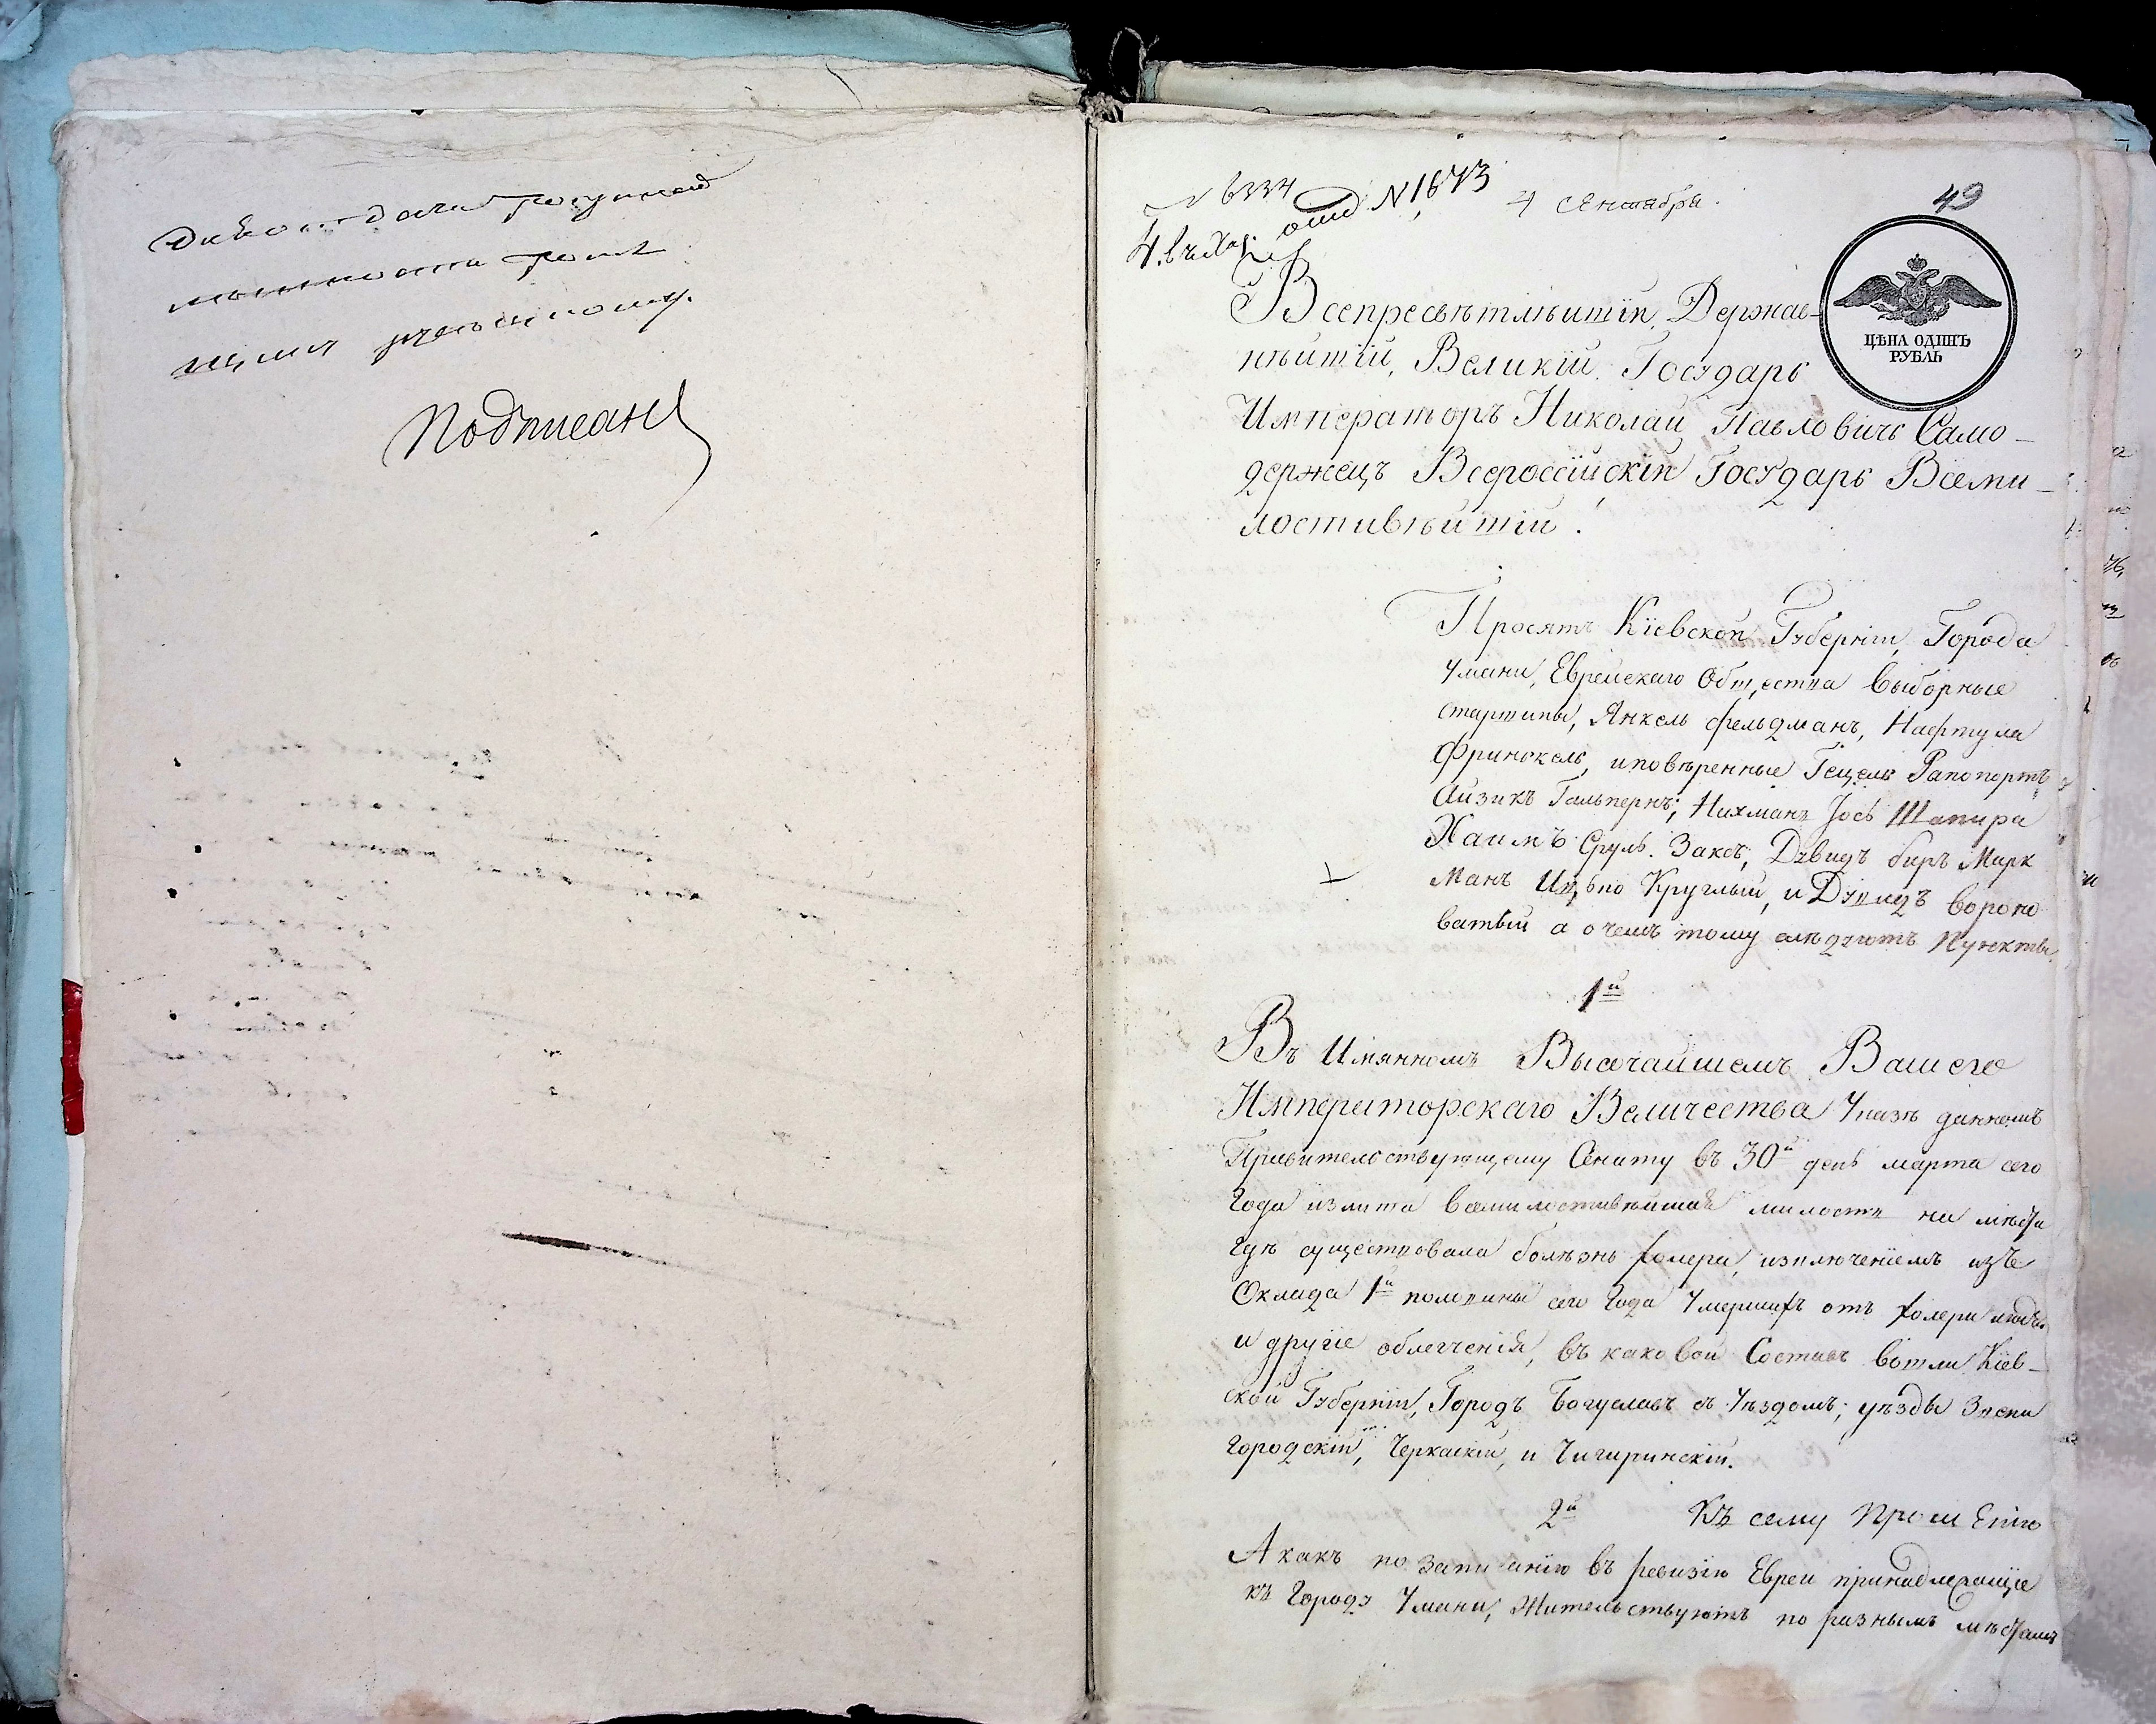 Подписанъ
№ 6334
отд №1673
4 Сентября
49
ЦѢНА ОДИНЪ
РУБЛЬ
Всепресвѣтлѣишіи, Держав-
нѣишіи, Великіи Государь
Императоръ Николаи Павловичь Само-
держецъ Всероссіискіи Государь Всеми-
лостивѣишіи!
Просятъ Кіевскои Губерніи, Города
Умани, Евреискаго Общества выборные
старшины, Янкель Фельдманъ, Нафтула
Френкель, иповѣренные Гецель Рапопортъ
Аизикъ Гальпернъ, Нихманъ Іось Шапира
Хаимъ Сруль Заксъ, Дувидъ беръ Марк
манъ Ицько Круглыи, и Дувидъ вороно
ватыи а о чемъ тому слѣдуютъ пункты.
1и
Въ Имянномъ Высочаишемъ Вашего
Императорскаго Величества Указѣ данномъ
Правительствующему Сенату въ 30и день марта сего
Года излита всемилостивѣишая милость на мѣста
гдѣ существовала болѣзнь холера, изключеніемъ изъ
Оклада 1и половины сего года Умершихъ отъ холери людеи
и другіе облегченія, въ каковои Составъ вошли Кіев-
скои Губерніи, Городъ Богуславъ съ Уѣздомъ; уѣзды Звени
городскіи, Черкаскіи, и Чигиринскіи.
2и
Къ сему Прошенію
А какъ по записанію въ ревизію Евреи принадлежащіе
къ Городу Умани, Жительствуютъ по разнымъ мѣстамъ